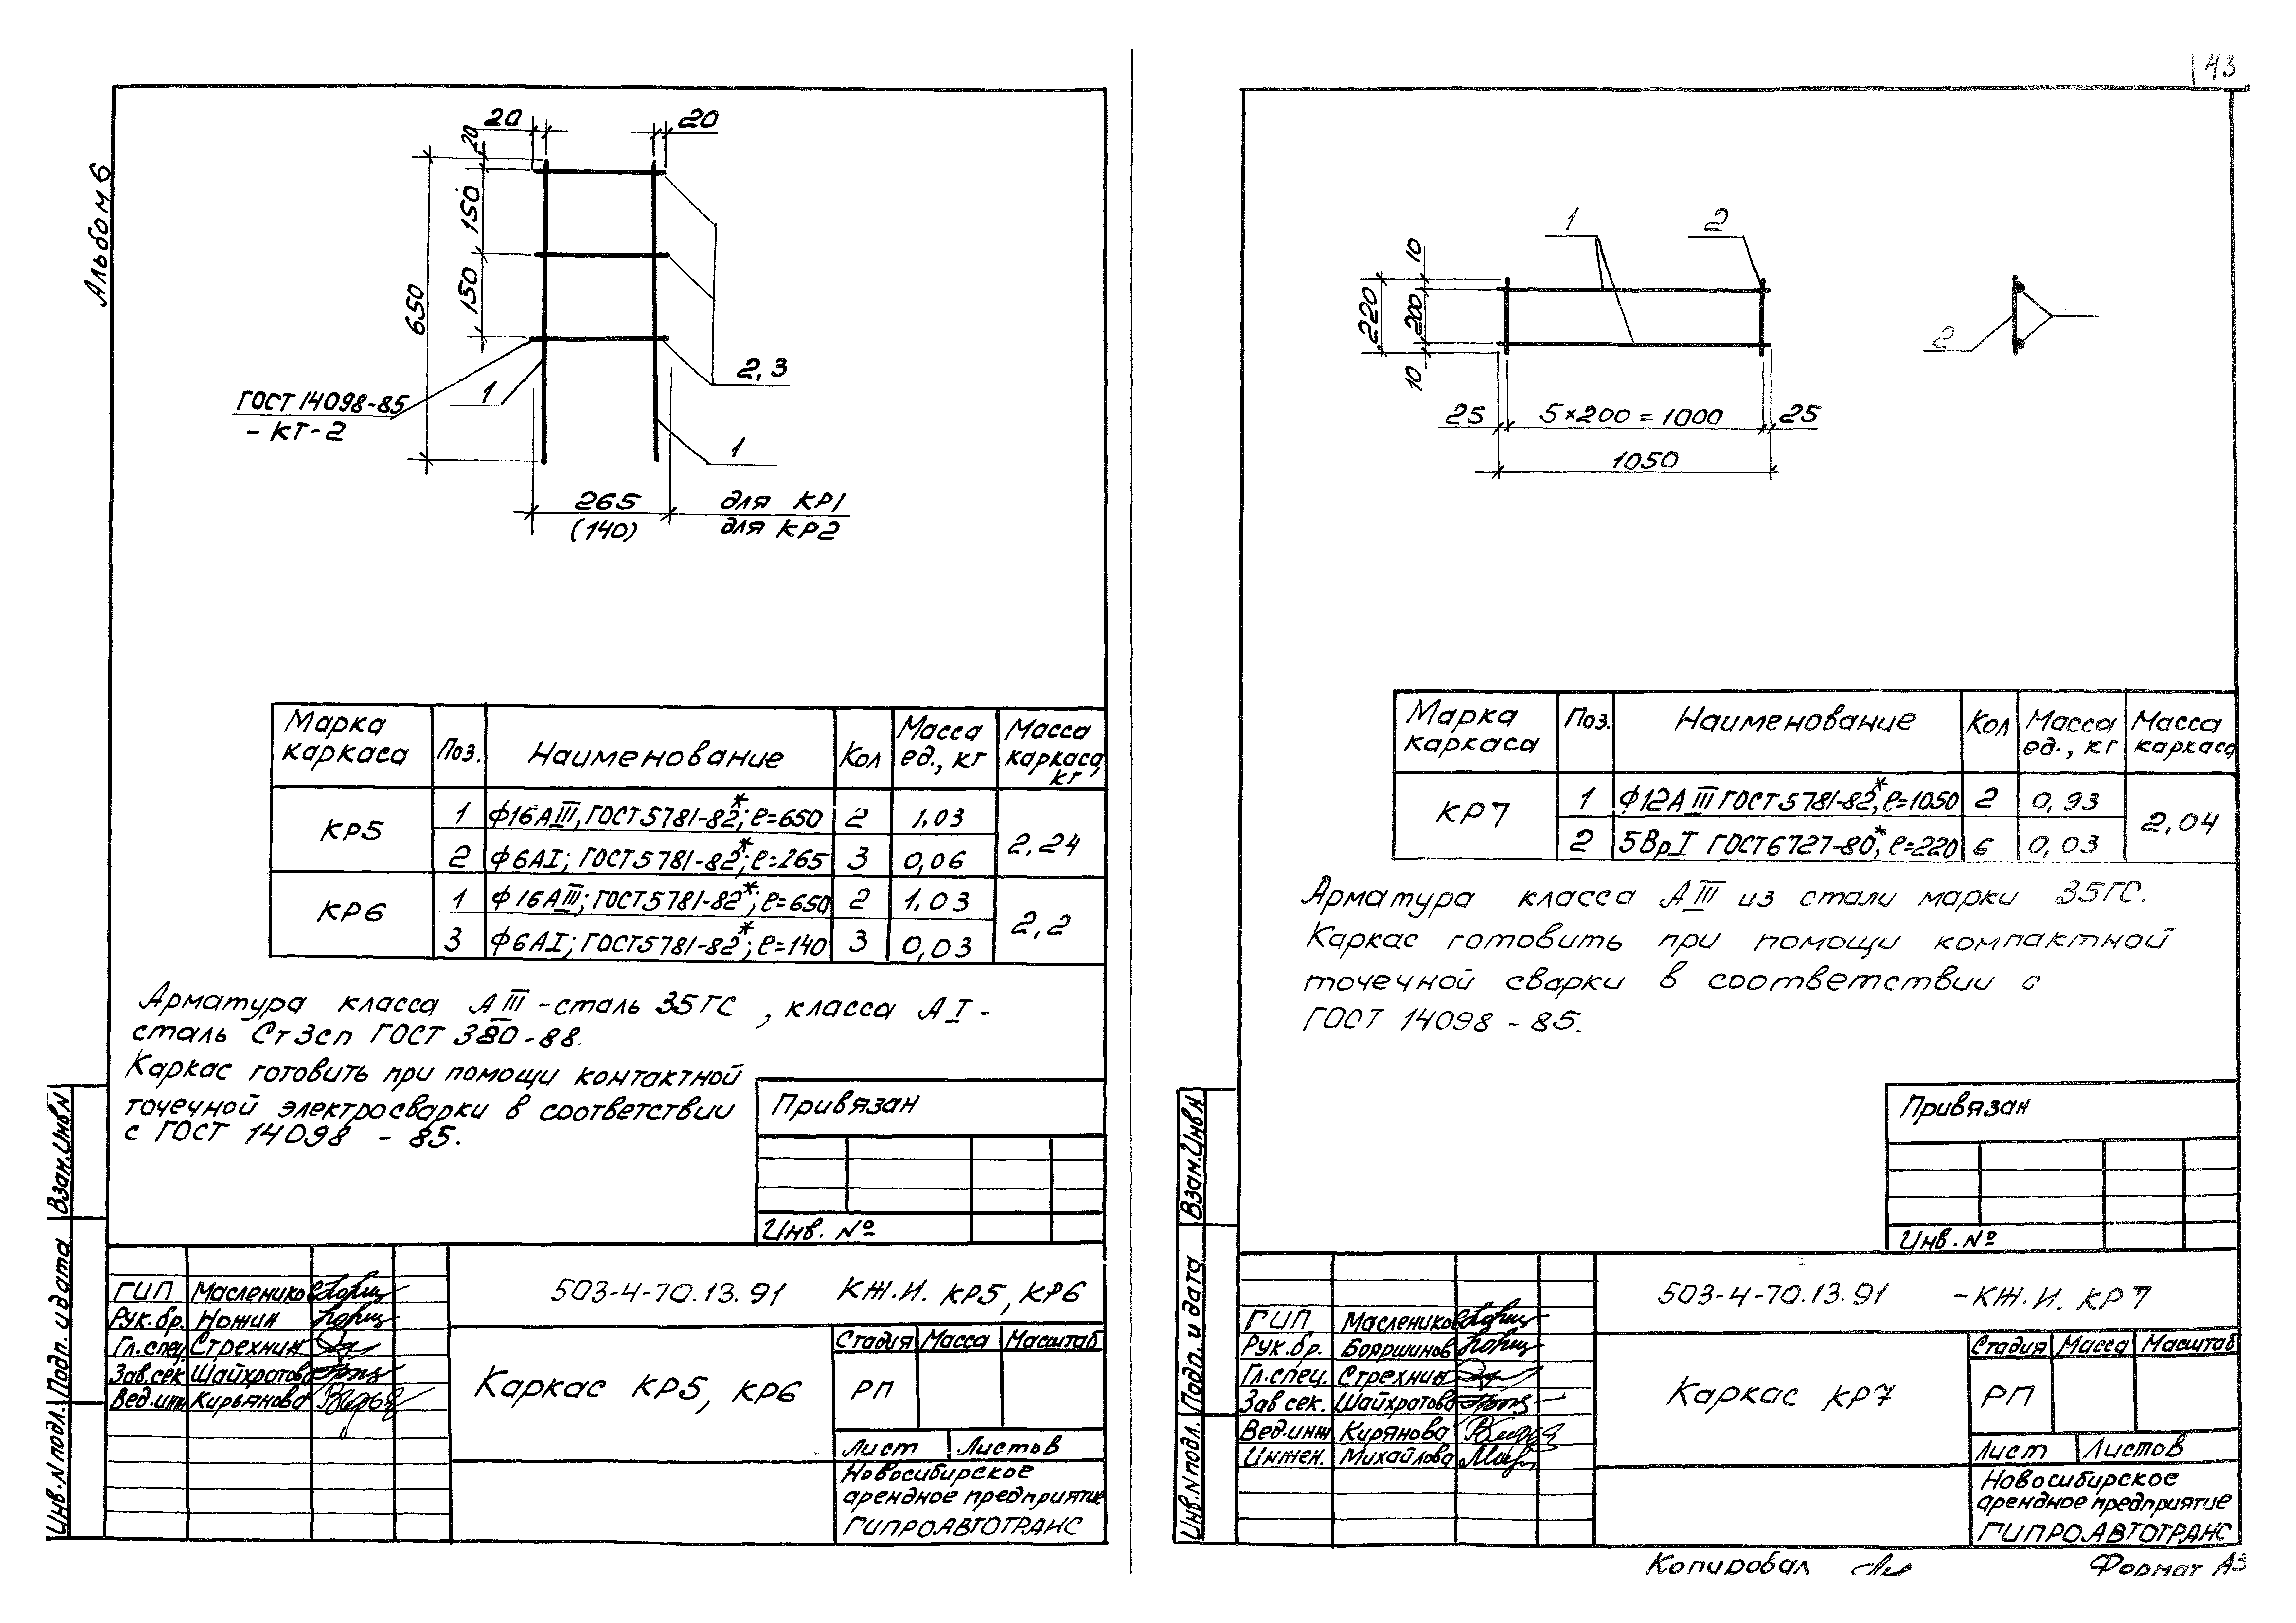 43
Альбом 6
20
20
20
150
150
650
ГОСТ 14098-85
- КТ-2
1
2,3
1
265
(140)
для КР1
для КР2
Марка каркаса Поз. Наименование Кол Масса ед., кг Масса каркаса, кг
КР5 1 ф16АIII; ГОСТ5781-82*; ℓ=650 2 1.03 2,24
2 ф6АI; ГОСТ5781-82*; ℓ=265 3 0,06
КР6 1 ф16АIII; ГОСТ5781-82*; ℓ=650 2 1,03 2,2
3 ф6АI; ГОСТ5781-82*; ℓ=140 3 0,03
Арматура класса АIII - сталь 35ГС , класса АI -
сталь Ст3сп ГОСТ 380-88.
Каркас готовить при помощи контактной
точечной электросварки в соответствии
с ГОСТ 14098 - 85.
Привязан
Инв. №
Взам.Инв.N
Подп. и дата
Инв.N подл.
503-4-70.13.91 КЖ.И. КР5, КР6
ГИП Маслеников
Рук.бр. Ножин
Гл.спец. Стрехнин
Зав.сек Шайхратова
Вед.инж Кирьянова
Каркас КР5, КР6
Стадия Масса Масштаб
РП
Лист Листов
Новосибирское
арендное предприятие
ГИПРОАВТОТРАНС
1
2
10
200
220
10
25
5×200=1000
25
1050
2
Марка каркаса Поз. Наименование Кол Масса ед., кг Масса каркаса
КР7 1 ф12АIII ГОСТ5781-82*; ℓ=1050 2 0,93 2,04
2 5ВрI ГОСТ6727-80*; ℓ=220 6 0,03
Арматура класса АIII из стали марки 35ГС.
Каркас готовить при помощи компактной
точечной сварки в соответствии с
ГОСТ 14098 - 85.
Привязан
Инв. №
Взам.Инв.N
Подп. и дата
Инв.N подл.
503-4-70.13.91 -КЖ.И. КР7
ГИП Маслеников
Рук.бр. Бояршинов
Гл.спец. Стрехнин
Зав сек. Шайхратова
Вед.инж Кирянова
Инжен. Михайлова
Каркас КР7
Стадия Масса Масштаб
РП
Лист Листов
Новосибирское
арендное предприятие
ГИПРОАВТОТРАНС
Копировал
Формат А3